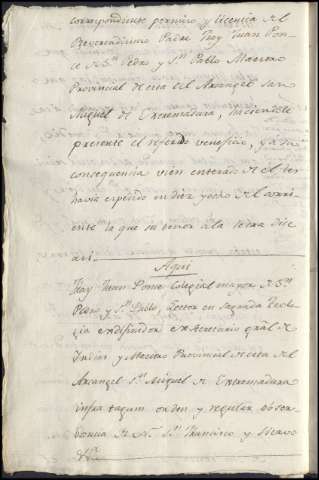 correspondiente permiso y licencia del
Reverendisimo Padre Fray Juan Pon-
ce de Sn. Pedro y Sn. Pablo Maestro
Provincial de esta del Arcangel san
Miguel de Extremadura, haciendole
presente el referido veneficio, y a su
consequencia vien enterado de el le
havia expedido en diez y ocho del corri-
ente la que su tenor a la letra dice
asi
Aqui
Fray Juan Ponce Colegial mayor de Sn.
Pedro y Sn. Pablo, Lector en sagrada Teolo-
gia exdifinidor exsecretario gral de
Indias y Maestro Provincial de esta del
Arcangel Sn. Miguel de Extremadura
infra tagum orden y regular obser-
bancia de N. P. Sn. Francisco y siervo